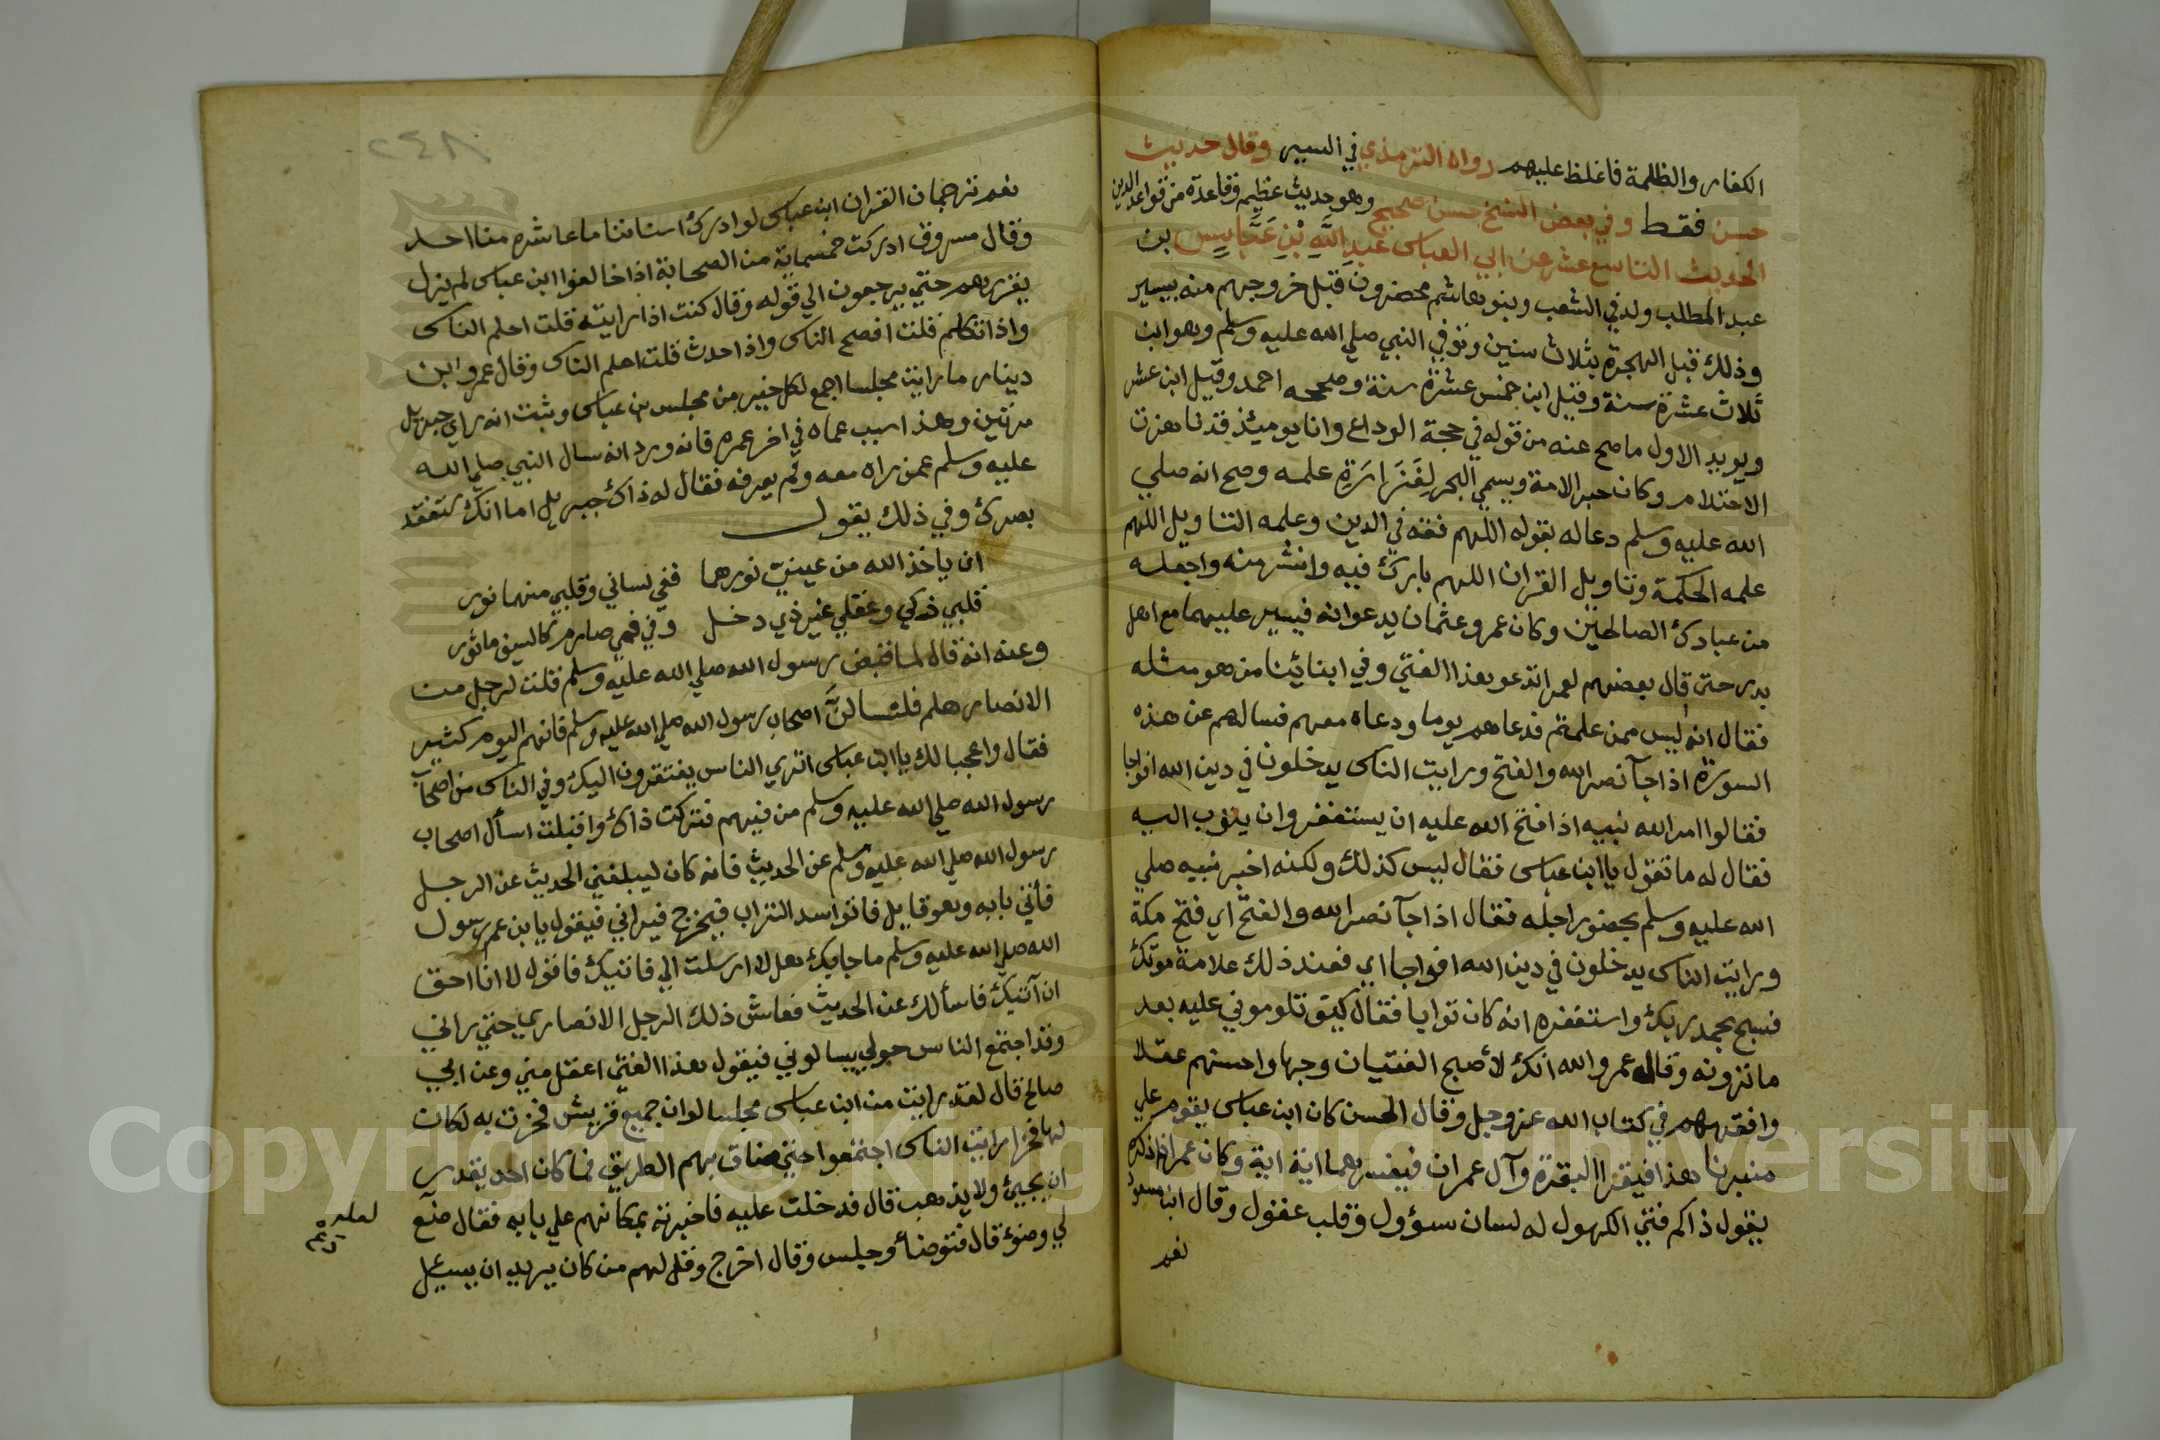 الكفار والظلمة فاغلظ عليهم رواه الترمذي في السير وقال حديث
حسن فقط وفي بعض النسخ حسن صحيح وهو حديث عظيم وقاعدة من قواعد الدين
الحديث التاسع عشر عن ابي العباس عَبدِ اللَّهِ بْنِ عَبَّاسٍ بن
عبد المطلب ولد في الشعب وبنو هاشم محصرون قبل خروجهم منه بيسير
وذلك قبل الهجرة بثلاث سنين وتوفي النبي صلي الله عليه وسلم وهو ابن
ثلاث عشرة سنة وقيل ابن خمس عشرة سنة وصححه احمد وقيل ابن عشر
ويويد الاول ما صح عنه من قوله في حجة الوداع وانا يوميذ قد ناهزت
الاحتلام وكان حبر الامة ويسمي البحر لِغَزَارَةِ علمه وصح انه صلي
الله عليه وسلم دعا له بقوله اللهم فقه في الدين وعلمه التاويل اللهم
علمه الحكمة وتاويل القران اللهم بارك فيه وانشر منه واجعله
من عبادك الصالحين وكان عمر وعثمان يدعوانه فيسير عليهما مع اهل
بدر حتى قال بعضهم لعمر اتدعو هذا الفتي وفي ابنائينا من هو مثله
فقال انه ليس ممن علمتم فدعاهم يوما ودعاه معهم فسالهم عن هذه
السورة اذا جآ نصر الله والفتح ورايت الناس يدخلون في دين الله افواجا
فقالوا امر الله نبيه اذا فتح الله عليه ان يستغفر وان يتوب اليه
فقال له ما تقول يا ابن عباس فقال ليس كذلك ولكنه اخبر نبيه صلي
الله عليه وسلم بحضور اجله فقال اذا جآ نصر الله والفتح اي فتح مكة
ورايت الناس يدخلون في دين الله افواجا اي فعند ذلك علامة موتك
فسبح بحمد ربك واستغفره انه كان توابا فقال كيف تلوموني عليه بعد
ما ترونه وقال له عمر والله انك لأصبح الفتيان وجها واحسنهم عقلا
وافقههم في كتاب الله عز وجل وقال الحسن كان ابن عباس يقوم علي
منبرنا هذا فيقرا البقرة وآل عمران فيفسرهما اية اية وكان عمر اذا ذكره
يقول ذاكم فتى الكهول له لسان سوؤل وقلب عقول وقال ابن مسعود
نعم
٢٤٨
نعم ترجمان القران ابن عباس لو ادرك اسناننا ما عاشره منا احد
وقال مسروق ادركت خمسماية من الصحابة اذا خالفوا ابن عباس لم يزل
يقررهم حتي يرجعون الي قوله وقال كنت اذا رايته قلت احلم الناس
واذا تكلم قلت افصح الناس واذا حدث قلت اعلم الناس وقال عمرو ابن
دينار ما رايت مجلسا اجمع لكل خير من مجلس بن عباس وثبت انه راي جبريل
مرتين وهذا سبب عماه في اخر عمره فانه ورد انه سال النبي صلي الله
عليه وسلم عمن راه معه ولم يعرفه فقال له ذاك جبريل اما انك ستفقد
بصرك وفي ذلك يقول
ان ياخذ الله من عينيّ نورهما ففي لساني وقلبي منهما نور
قلبي ذكي وعقلي غير ذي دخل وفي فمي صارم كالسيف ماثور
وعنه انه قال لما قبض رسول الله صلي الله عليه وسلم قلت لرجل من
الانصار هلم فلنسالنَّ اصحاب رسول الله صلي الله عليه وسلم فانهم اليوم كثير
فقال واعجبا لك يا ابن عباس اتري الناس يفتقرون اليك وفي الناس من اصحاب
رسول الله صلي الله عليه وسلم من فيهم فتركت ذاك واقبلت اسأل اصحاب
رسول الله صلي الله عليه وسلم عن الحديث فانه كان ليبلغني الحديث عن الرجل
فأتي بابه وهو قايل فاتوسد التراب فيخرج فيراني فيقول يا بن عم رسول
الله صلي الله عليه وسلم ما جابك هلا ارسلت الي فاتيك فاقول لا انا احق
ان آتيك فاسألك عن الحديث فعاش ذلك الرجل الانصاري حتي راني
وقد اجتمع الناس حولي يسالوني فيقول هذا الفتي اعقل مني وعن ابي
صالح قال لقد رايت من ابن عباس مجلسا لو ان جميع قريش فخرت به لكان
لها فخرا رايت الناس اجتمعوا حتي ضاق بهم الطريق فما كان احد يقدر
ان يجيئ ولا يذهب قال فدخلت عليه فاخبرته بمكانهم علي بابه فقال ضع
لي وضوء قال فتوضأ وجلس وقال اخرج وقل لهم من كان يريد ان يسيل
لعله
Copyright © King Saud University